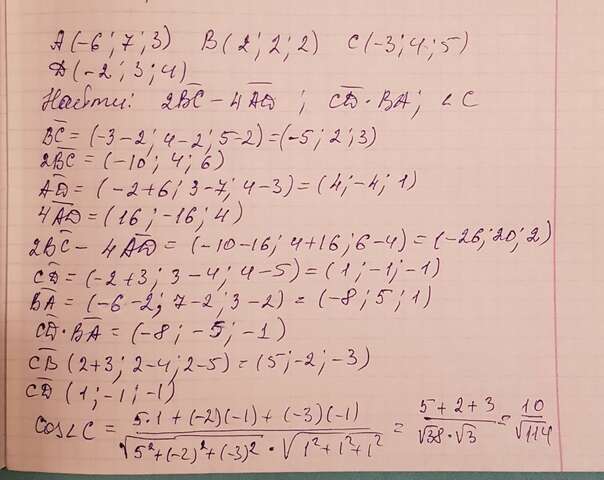 A(-6; 7; 3) B(2; 2; 2) C(-3; 4; 5)
D(-2; 3; 4)
Найти: 2BC̅ - 4AD̅ ; CD̅ · BA̅; ∠C
BC̅ = (-3-2; 4-2; 5-2) = (-5; 2; 3)
2BC̅ = (-10; 4; 6)
AD̅ = (-2+6; 3-7; 4-3) = (4; -4; 1)
4AD̅ = (16; -16; 4)
2BC̅ - 4AD̅ = (-10-16; 4+16; 6-4) = (-26; 20; 2)
CD̅ = (-2+3; 3-4; 4-5) = (1; -1; -1)
BA̅ = (-6-2; 7-2; 3-2) = (-8; 5; 1)
CD̅ · BA̅ = (-8; -5; -1)
CB̅ (2+3; 2-4; 2-5) = (5; -2; -3)
CD̅ (1; -1; -1)
cos∠C = (5·1 + (-2)(-1) + (-3)(-1)) / (√(5²+(-2)²+(-3)²) · √(1²+1²+1²)) = (5+2+3) / (√38 · √3) = 10/√114